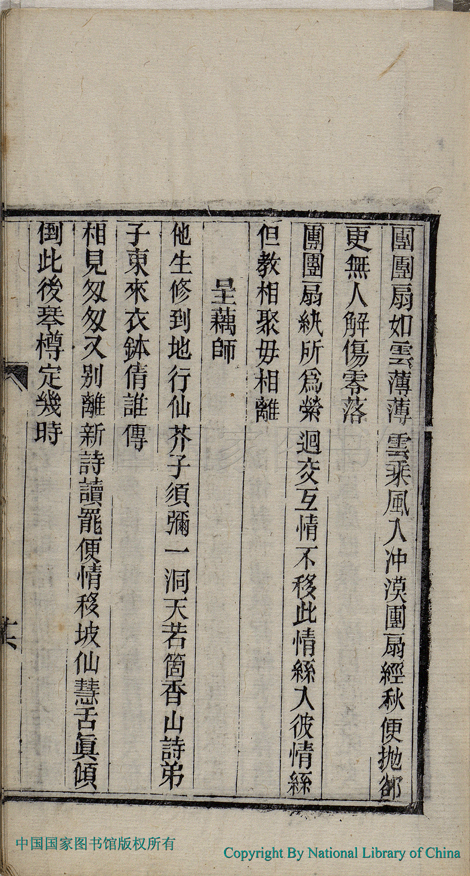 團團扇如雲薄薄雲乘風入冲漠團扇經秋便抛郤
更無人解傷零落
團團扇紈所爲縈迴交互情不移此情絲入彼情絲
但教相聚毋相離
呈藕師
他生修到地行仙芥子須彌一洞天若箇香山詩弟
子東來衣鉢倩誰傳
相見匆匆又別離新詩讀罷便情移坡仙慧舌眞傾
倒此後琴樽定幾時
中国国家图书馆版权所有
Copyright By National Library of China